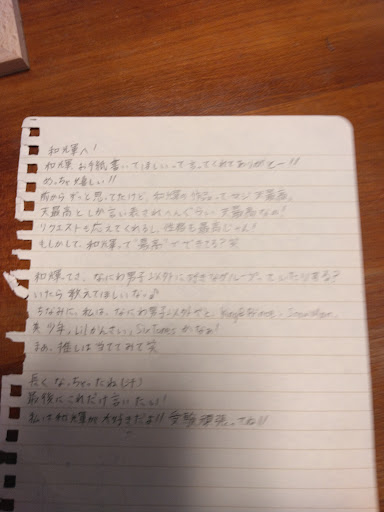 和輝へ!
和輝、お手紙書いてほしいって言ってくれてありがとー!!
めっちゃ嬉しい!!
前からずっと思ってたけど、和輝の作品ってマジ天最高。
天最高としか言い表されへんぐらい天最高なの!
リクエストも応えてくれるし、性格も最高じゃん!
もしかして、和輝って"最高"でできてる?笑
和輝ってさ、なにわ男子以外に好きなグループっていたりする?
いたら教えてほしいなっ♪
ちなみに、私は、なにわ男子以外やと、King&Prince、SnowMan、
美 少年、Lilかんさい、SixTONESかなぁ!
まぁ、推しは当ててみて笑
長くなっちゃったね(汗)
最後にこれだけ言いたい!
私は和輝が大好きだよ!!受験頑張ってね!!